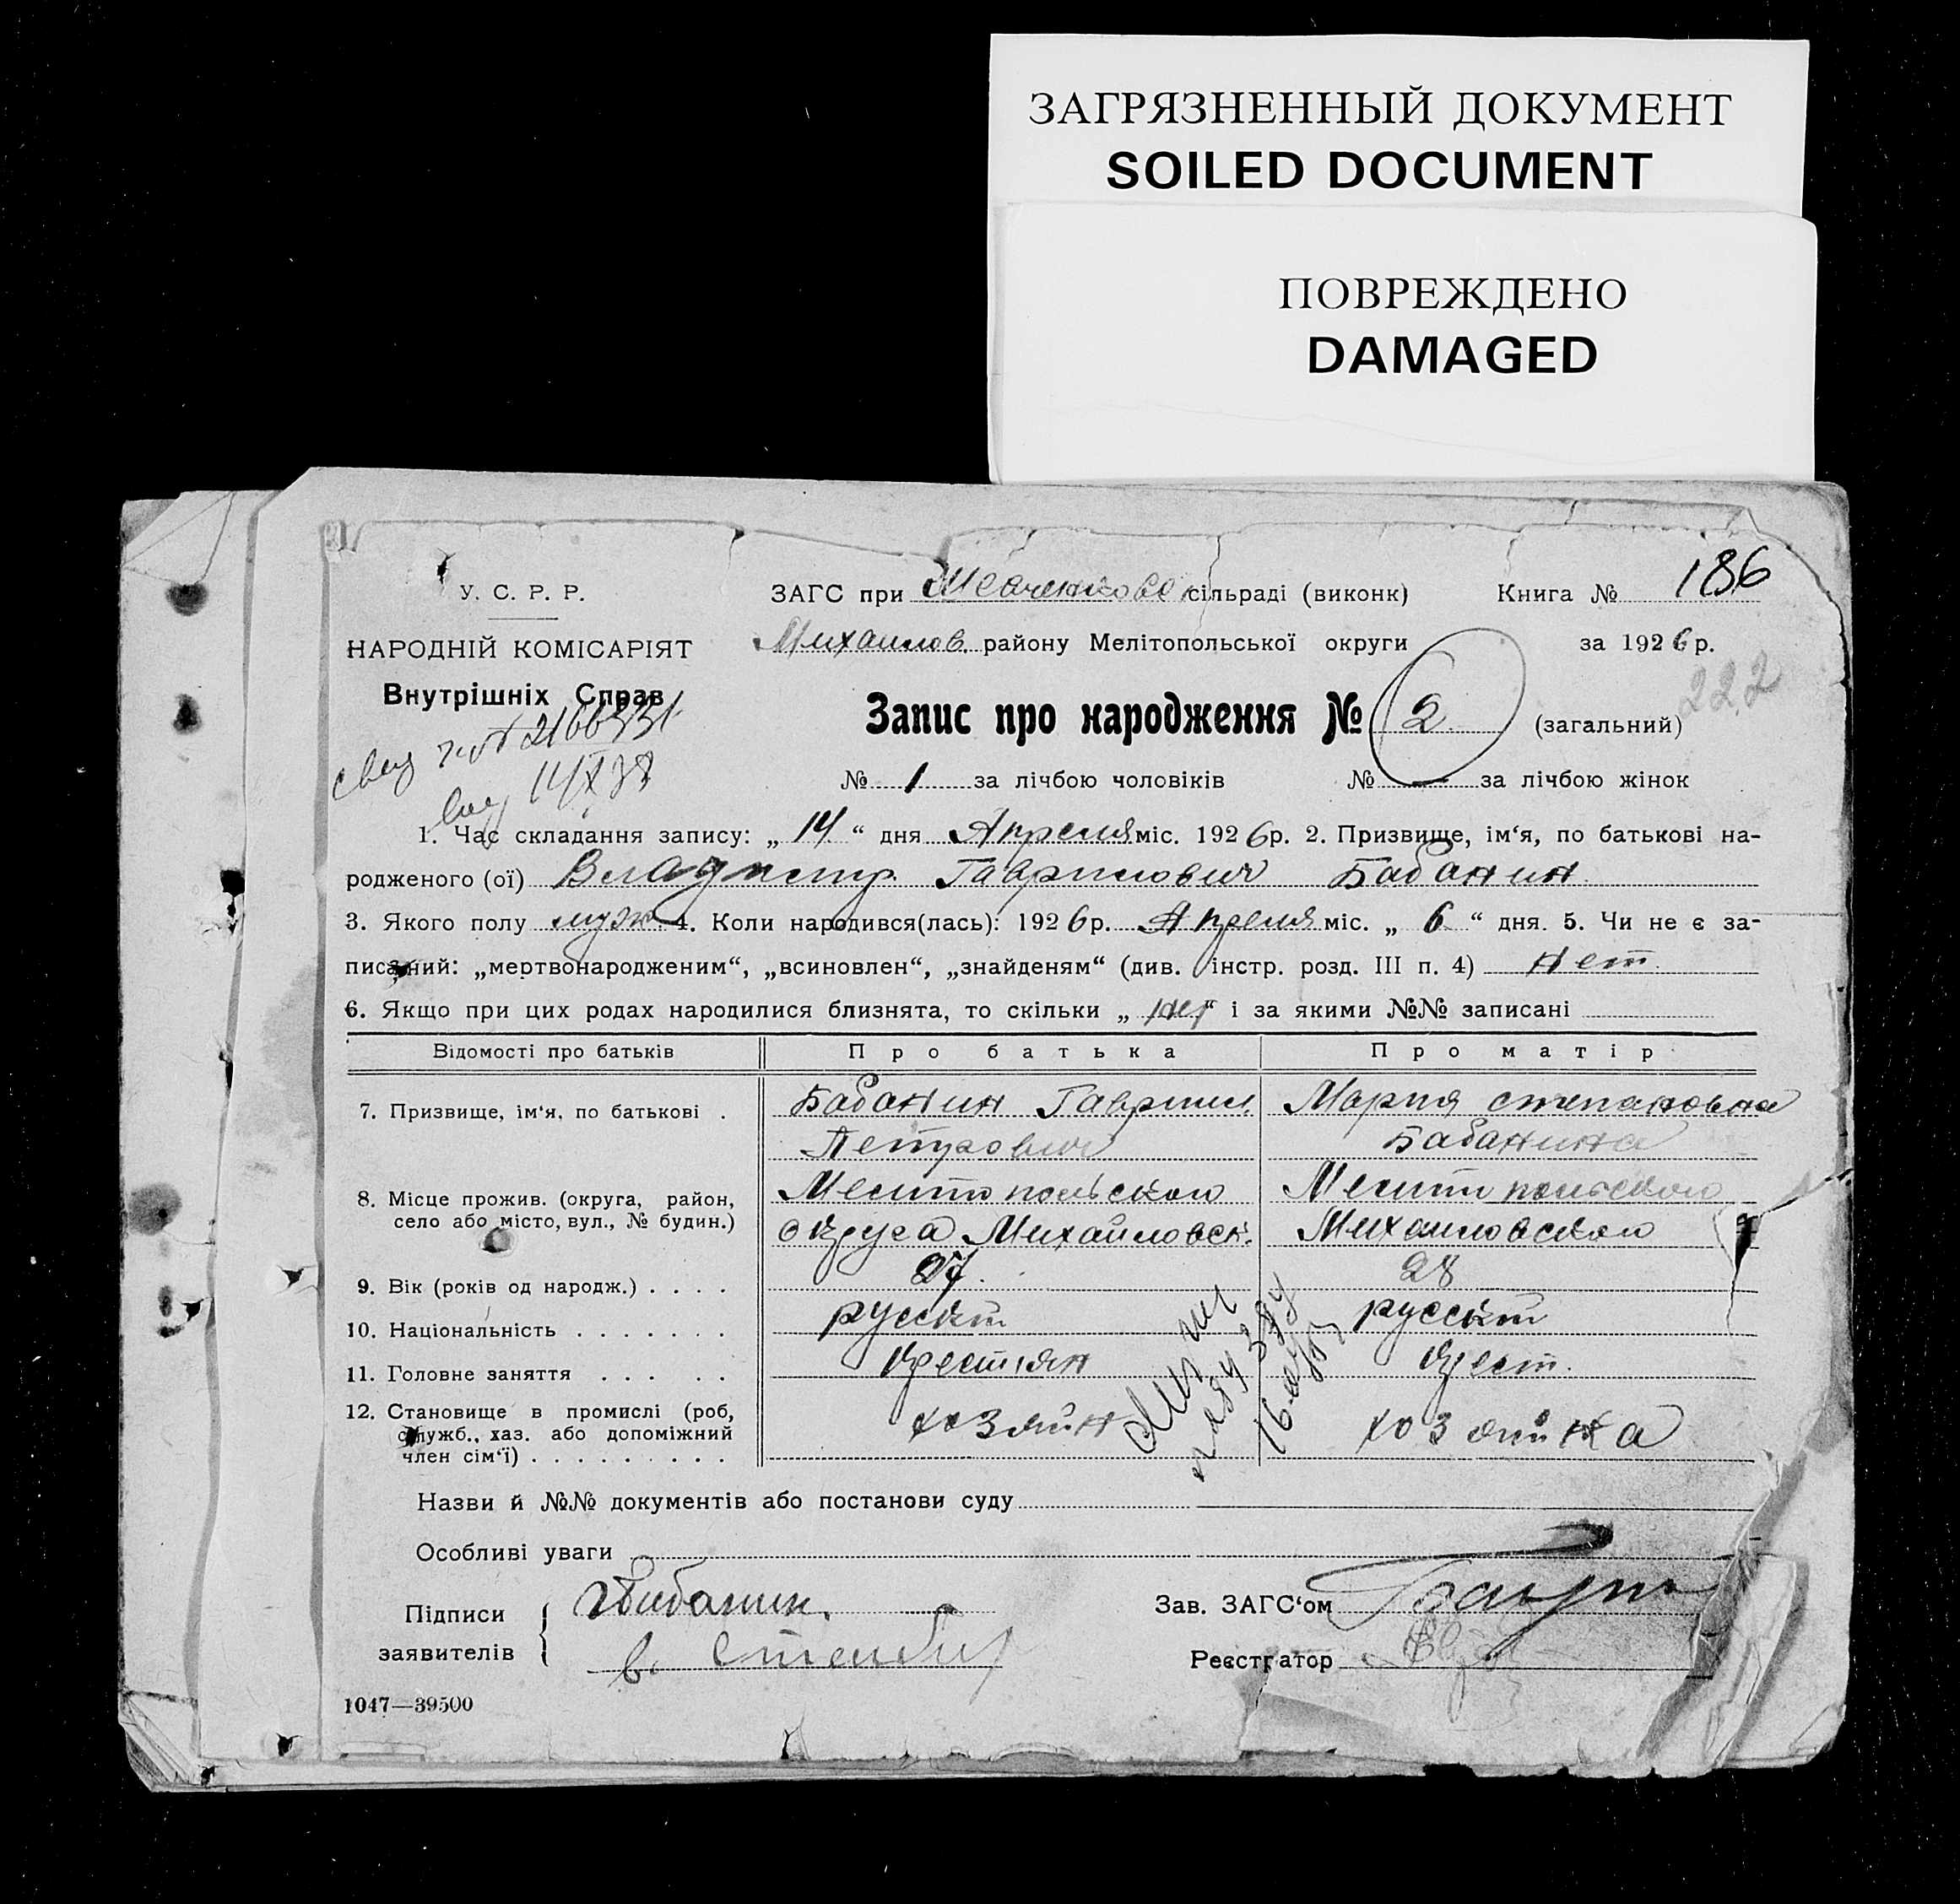 ЗАГРЯЗНЕННЫЙ ДОКУМЕНТ
SOILED DOCUMENT
ПОВРЕЖДЕНО
DAMAGED
У. С. Р. Р.
НАРОДНІЙ КОМІСАРІЯТ
Внутрішніх Справ
14/X 38
ЗАГС при сільраді (виконк) Книга № 186
Михайлов. району Мелітопольської округи за 1926 р.
222
Запис про народження № 2 (загальний)
№ 1 за лічбою чоловіків № — за лічбою жінок
1. Час складання запису: „ 14 “ дня Апреля міс. 1926р. 2. Призвище, ім‘я, по батькові на-
родженого (ої) Гаврилович Бабанин
3. Якого полу муж. 4. Коли народився(лась): 1926р. Апреля міс. „ 6 “ дня. 5. Чи не є за-
писаний: „мертвонародженим“, „всиновлен“, „знайденям“ (див. інстр. розд. III п. 4) нет
6. Якщо при цих родах народилися близнята, то скільки „ нет “ і за якими №№ записані
Відомості про батьків Про батька Про матір
7. Призвище, ім‘я, по батькові . Бабанин Гаврил Мария степановна
Петрович Бабанина
8. Місце прожив. (округа, район, Мелитопольского Мелитопольского
село або місто, вул., № будин.) округа Михайловск. Михайловского
9. Вік (років од народж.) . . . . 27. 28
10. Національність . . . . . . . русскт русскт
11. Головне заняття . . . . . Крестіян Крест.
12. Становище в промислі (роб, хозяин хозяйка
служб., хаз. або допоміжний
член сім‘ї) . . . . . . . . .
Назви й №№ документів або постанови суду
Особливі уваги
Підписи
заявителів
Гбабанин.
Зав. ЗАГС‘ом
Реєстратор
1047—39500